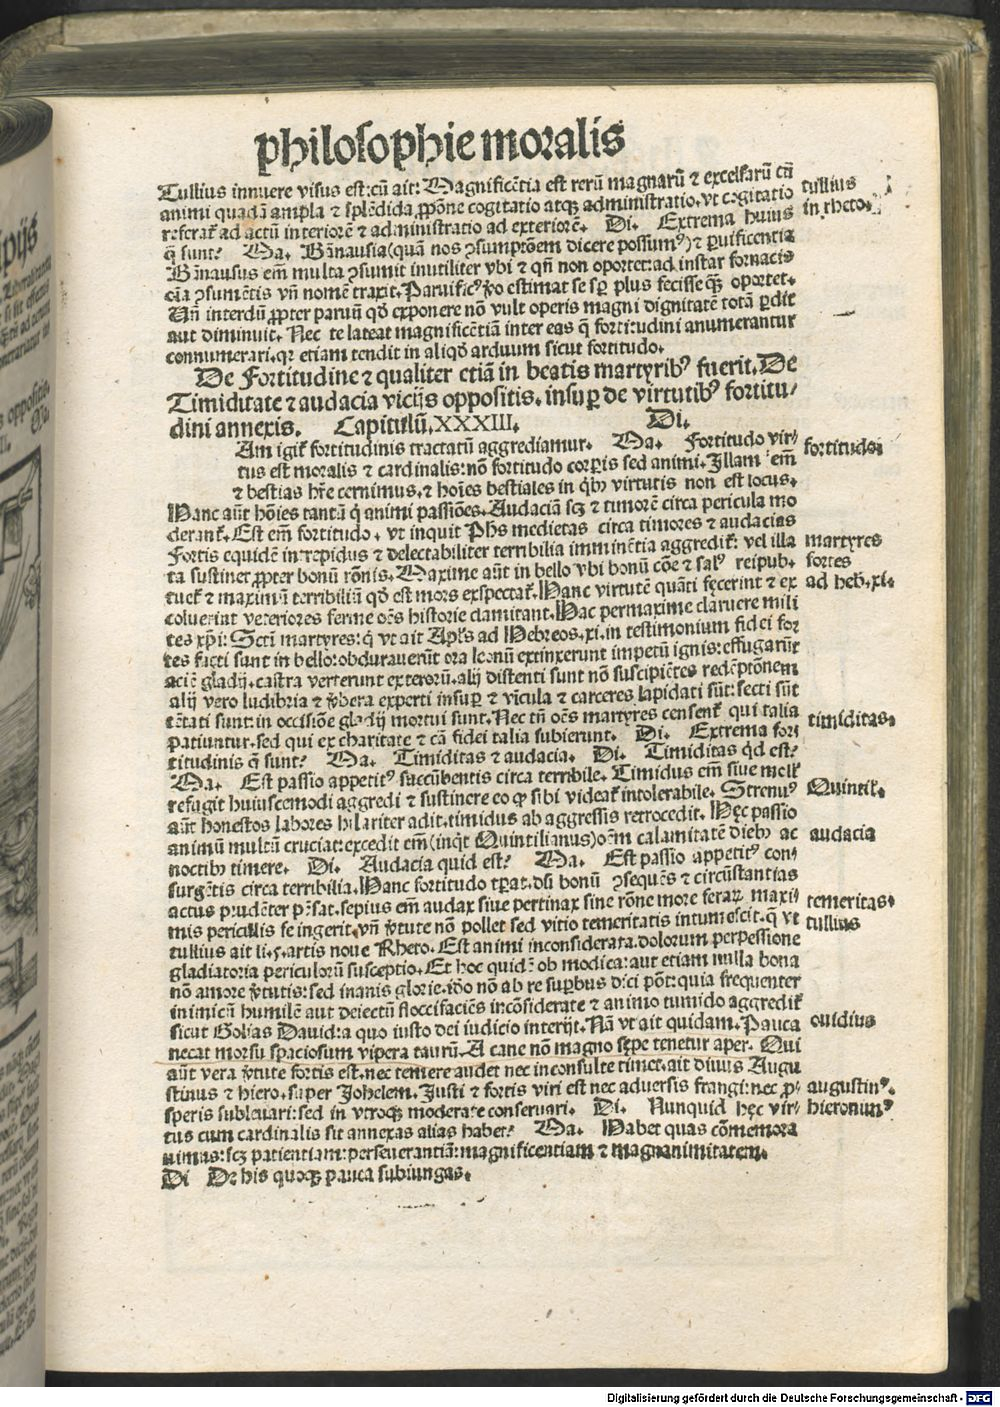 philosophie moralis
Tullius innuere visus est: cū ait: Magnificētia est rerū magnarū ⁊ excelsarū cū
animi quadā ampla ⁊ splēdida ꝓpōne cogitatio atqꝫ administratio. vt cogitatio
referat̃ ad actū interiorē ⁊ administratio ad exteriorē. Di. Extrema huius
q̄ sunt? Ma. Bānausia (quā nos ꝯsumptōem dicere possumꝰ) ⁊ ꝑuificentia
Bānausus em̄ multa ꝯsumit inutiliter vbi ⁊ qn̄ non oportet: ad instar fornacis
oīa ꝯsumētis vn̄ nomē traxit. Paruificꝰ ꝟo estimat se sꝑ plus fecisse qꝫ oportet.
Un̄ interdū ꝓpter paruū qď exponere nō vult operis magni dignitatē totā ꝑdit
aut diminuit. Nec te lateat magnificētiā inter eas q̄ fortitudini anumerantur
connumerari. qꝛ etiam tendit in aliqď arduum sicut fortitudo.
De Fortitudine ⁊ qualiter etiā in beatis martyribꝰ fuerit. De
Timiditate ⁊ audacia vicijs oppositis. insuꝑ de virtutibꝰ fortitu⸗
dini annexis. Capitulū. XXXIII. Di.
Am igit̃ fortitudinis tractatū aggrediamur. Ma. Fortitudo vir⸗
tus est moralis ⁊ cardinalis: nō fortitudo corꝑis sed animi. Illam em̄
⁊ bestias hr̄e cernimus. ⁊ hoīes bestiales in qͥbꝫ virtutis non est locus.
Hanc aūt hoīes tantū q̄ animi passiōes. Audaciā scꝫ ⁊ timorē circa pericula mo
derant̃. Est em̄ fortitudo. vt inquit Ph̄s medietas circa timores ⁊ audacias
Fortis equidē intrepidus ⁊ delectabiliter terribilia imminētia aggredit̃: vel illa
ta sustinet ꝓpter bonū rōnis. Maxime aūt in bello vbi bonū cōe ⁊ salꝰ reipub.
tuet̃ ⁊ maximū terribiliū qď est mors exspectat̃. Hanc virtutē quāti fęcerint ⁊ ex
coluerint veteriores ferme oēs historie clamitant. Hac permaxime claruere mili
tes xp̄i: Scti martyres: q̄ vt ait Apl̃s ad Hebreos. xi. in testimonium fidei for
tes facti sunt in bello: obdurauerūt ora leonū extinxerunt impetū ignis: effugarūt
aciē gladij. castra verterunt exterorū. alij distenti sunt nō suscipiētes redēptōnem
alij vero ludibria ⁊ ꝟbera experti insuꝑ ⁊ vīcula ⁊ carceres lapidati sūt: secti sūt
tētati sunt: in occisiōe gladij mortui sunt. Nec tn̄ oēs martyres censent̃ qui talia
patiuntur. sed qui ex charitate ⁊ cā fidei talia subierunt. Di. Extrema for⸗
titudinis q̄ sunt? Ma. Timiditas ⁊ audacia. Di. Timiditas qͥd est?
Ma. Est passio appetitꝰ succūbentis circa terribile. Timidus em̄ siue mell̃
refugit huiuscemodi aggredi ⁊ sustinere eo ꝙ sibi videat̃ intolerabile. Strenuꝰ
aūt honestos labores hilariter adit. timidus ab aggressis retrocedit. Hęc passio
animū multū cruciat: excedit em̄ (inqͥt Quintilianus) oēm calamitatē diebꝫ ac
noctibꝫ timere. Di. Audacia quid est? Ma. Est passio appetitꝰ con⸗
surgētis circa terribilia. Hanc fortitudo tꝑat. dū bonū ꝯsequēs ⁊ circūstantias
actus prudēter pēsat. sepius em̄ audax siue pertinax sine rōne more feraꝝ maxi⸗
mis periculis se ingerit. vn̄ ꝟtute nō pollet sed vitio temeritatis intumescit. q̄ vt
tullius ait li. 5. artis noue Rheto. Est animi inconsiderata. dolorum perpessione
gladiatoria periculorū susceptio. Et hoc quidē ob modica: aut etiam nulla bona
nō amore ꝟtutis: sed inanis glorie. iďo nō ab re suꝑbus dici pōt: quia frequenter
inimicū humilē aut deiectū floccifaciēs incōsiderate ⁊ animo tumido aggredit̃
sicut Golias Dauid: a quo iusto dei iudicio interijt. Nā vt ait quidam. Pauca
necat morsu spaciosum vipera taurū. A cane nō magno sępe tenetur aper. Qui
aūt vera ꝟtute fortis est. nec temere audet nec inconsulte timet. ait diuus Augu
stinus ⁊ hiero. super Johelem. Justi ⁊ fortis viri est nec aduersis frangi: nec ꝓ⸗
speris subleuari: sed in vtroqꝫ moderate conseruari. Di. Nunquid hęc vir⸗
tus cum cardinalis sit annexas alias habet? Ma. Habet quas cōmemora
uimus: scꝫ patientiam: perseuerantiā: magnificentiam ⁊ magnanimitatem.
Di De his quoqꝫ pauca subiungas.
tullius
in rheto.
fortitudo
martyres
fortes
ad heb. xi.
timiditas.
Quintil.
audacia
temeritas.
tullius
ouidius
augustinꝰ.
hieronimꝰ
Digitalisierung gefördert durch die Deutsche Forschungsgemeinschaft - DFG